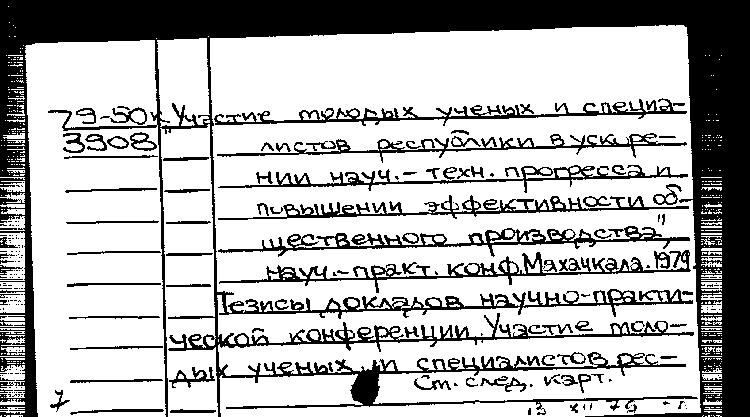 79-50к „Участие молодых ученых и специа-
3908 листов республики в ускоре-
нии науч.-техн. прогресса и
повышении эффективности об-
щественного производства",
науч.-практ. конф. Махачкала. 1979
Тезисы докладов научно-практи-
ческой конференции „Участие моло-
дых ученых и специалистов рес-
См. след. карт.
7
13 XII 79